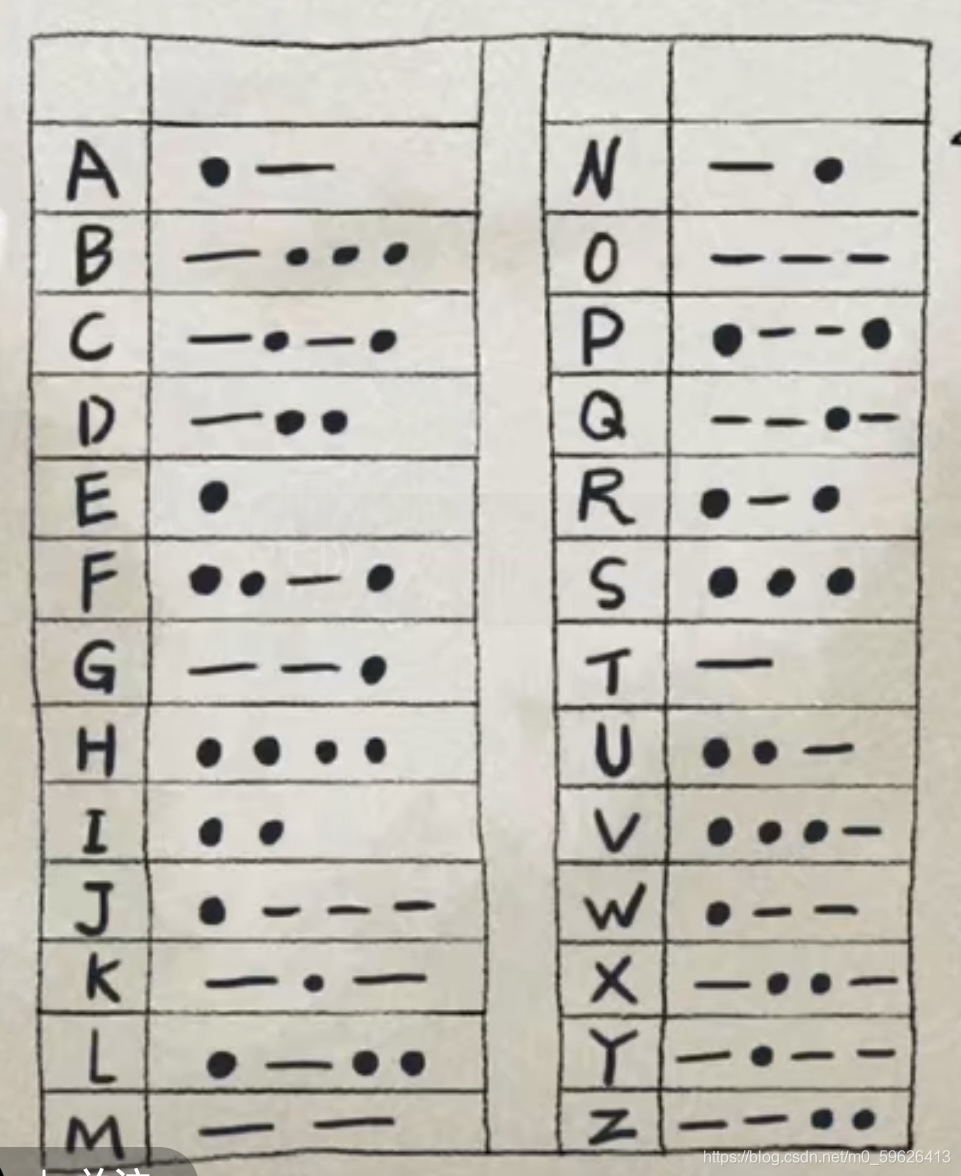 A ● —
B — ● ● ●
C — ● — ●
D — ● ●
E ●
F ● ● — ●
G — — ●
H ● ● ● ●
I ● ●
J ● — — —
K — ● —
L ● — ● ●
M — —
N — ●
O — — —
P ● — — ●
Q — — ● —
R ● — ●
S ● ● ●
T —
U ● ● —
V ● ● ● —
W ● — —
X — ● ● —
Y — ● — —
Z — — ● ●
https://blog.csdn.net/m0_59626413